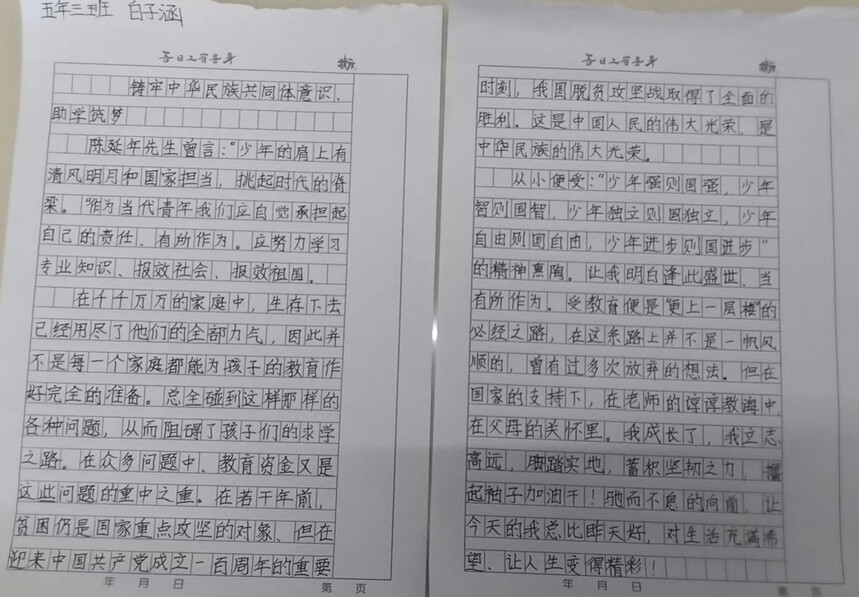 五年三班 白子涵
吾日三省吾身
铸牢中华民族共同体意识、
助学筑梦
陈延年先生曾言:“少年的肩上有
清风明月和国家担当,挑起时代的脊
梁。“作为当代青年我们应自觉承担起
自己的责任、有所作为。应努力学习
专业知识、报效社会、报效祖国。
在千千万万的家庭中,生存下去
已经用尽了他们的全部力气,因此并
不是每一个家庭都能为孩子的教育作
好完全的准备。总全碰到这样那样的
各种问题,从而阻碍了孩子们的求学
之路。在众多问题中、教育资金又是
这些问题的重中之重。在若干年前,
贫困仍是国家重点攻坚的对象、但在
迎来中国共产党成立一百周年的重要
年 月 日 第 页
吾日三省吾身
时刻,我国脱贫攻坚战取得了全面的
胜利。这是中国人民的伟大光荣,是
中华民族的伟大光荣。
从小便受:“少年强则国强,少年
智则国智,少年独立则国独立,少年
自由则国自由,少年进步则国进步”
的精神熏陶。让我明白逢此盛世,当
有所作为。受教育便是“更上一层楼”的
必经之路,在这条路上并不是一帆风
顺的,曾有过多次放弃的想法。但在
国家的支持下,在老师的谆谆教诲中,
在父母的关怀里。我成长了,我立志
高远,脚踏实地,蓄积坚韧之力,撸
起袖子加油干!驰而不息的向前,让
今天的我总比昨天好,对生活充满希
望、让人生变得精彩!
年 月 日 第 页